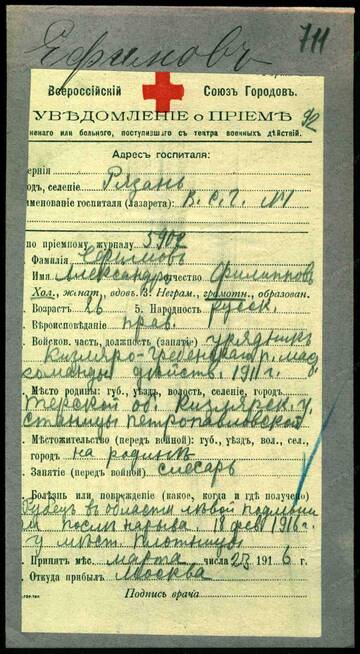 Ефимовъ
711
Всероссійскій Союзъ Городовъ.
УВѢДОМЛЕНІЕ о ПРІЕМѢ
92
ненаго или больного, поступившаго съ театра военныхъ дѣйствій.
Адресъ госпиталя:
ернія
одъ, селеніе Рязань
именованіе госпиталя (лазарета) В. С. Г. №1
по пріемному журналу 5902
Фамилія Ефимовъ
Имя Александръ чество Филиппов
Хол., женат., вдовъ. 3. Неграм., грамотн., образован.
Возрастъ 26 5. Народность русск.
Вѣроисповѣданіе прав.
Войсков. часть, должность (занятіе) урядникъ
Кизляро-Гребенскаго п.
команды дѣйств. 1911 г.
Мѣсто родины: губ., уѣздъ, волость, селеніе, городъ
Терской об. Кизлярск. у.
станицы Петропавловской
Мѣстожительство (передъ войной): губ., уѣздъ, вол., сел.,
городъ на родинѣ
Занятіе (передъ войной) слесарь
Болѣзнь или поврежденіе (какое, когда и гдѣ получено)
Рубецъ въ области лѣвой
послѣ нарыва. 18 фев 1916 г.
у мѣст. Плотницы
Принятъ мѣс. марта числа 23 1916 г.
Откуда прибылъ Москва
Подпись врача